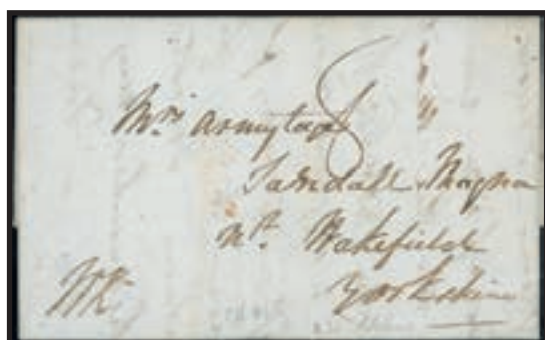 Mrs. Armytage
Sandall Magna
Nr. Wakefield
Yorkshire